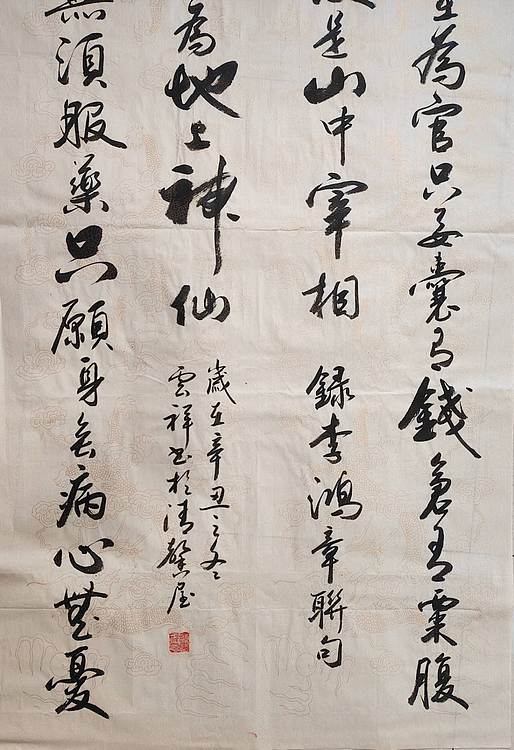 在為官只要囊有錢倉有粟腹
是山中宰相 錄李鴻章聯句
無須服藥只願身無病心無憂
為地上神仙
歲在辛丑之冬
雲祥書於清馨屋